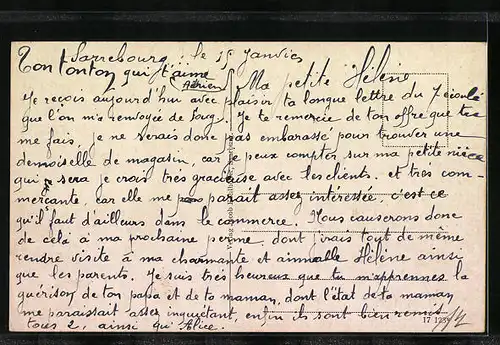 Sarrebourg, le 15 Janvier
Ton tonton qui t'aime
Adrien
Ma petite Hélène
Je reçois aujourd'hui avec plaisir ta longue lettre du 7 écoulé
que l'on m'a renvoyée de Je te remercie de ton offre que tu
me fais, je ne serais donc pas embarassé pour trouver une
demoiselle de magasin, car je peux compter sur ma petite nièce
qui sera je crois très gracieuse avec les clients. et très com-
merçante, car elle me parait assez intéressée, c'est ce
qu'il faut d'ailleurs dans le commerce. Nous causerons donc
de cela à ma prochaine perme, dont j'irais tout de même
rendre visite à ma charmante et aimable Hélène ainsi
que les parents. Je suis très heureux que tu m'apprennes la
guérison de ton papa et de ta maman, dont l'état de ta maman
me paraissait assez inquiétant, enfin ils sont bien remis
tous 2, ainsi qu'Alice.